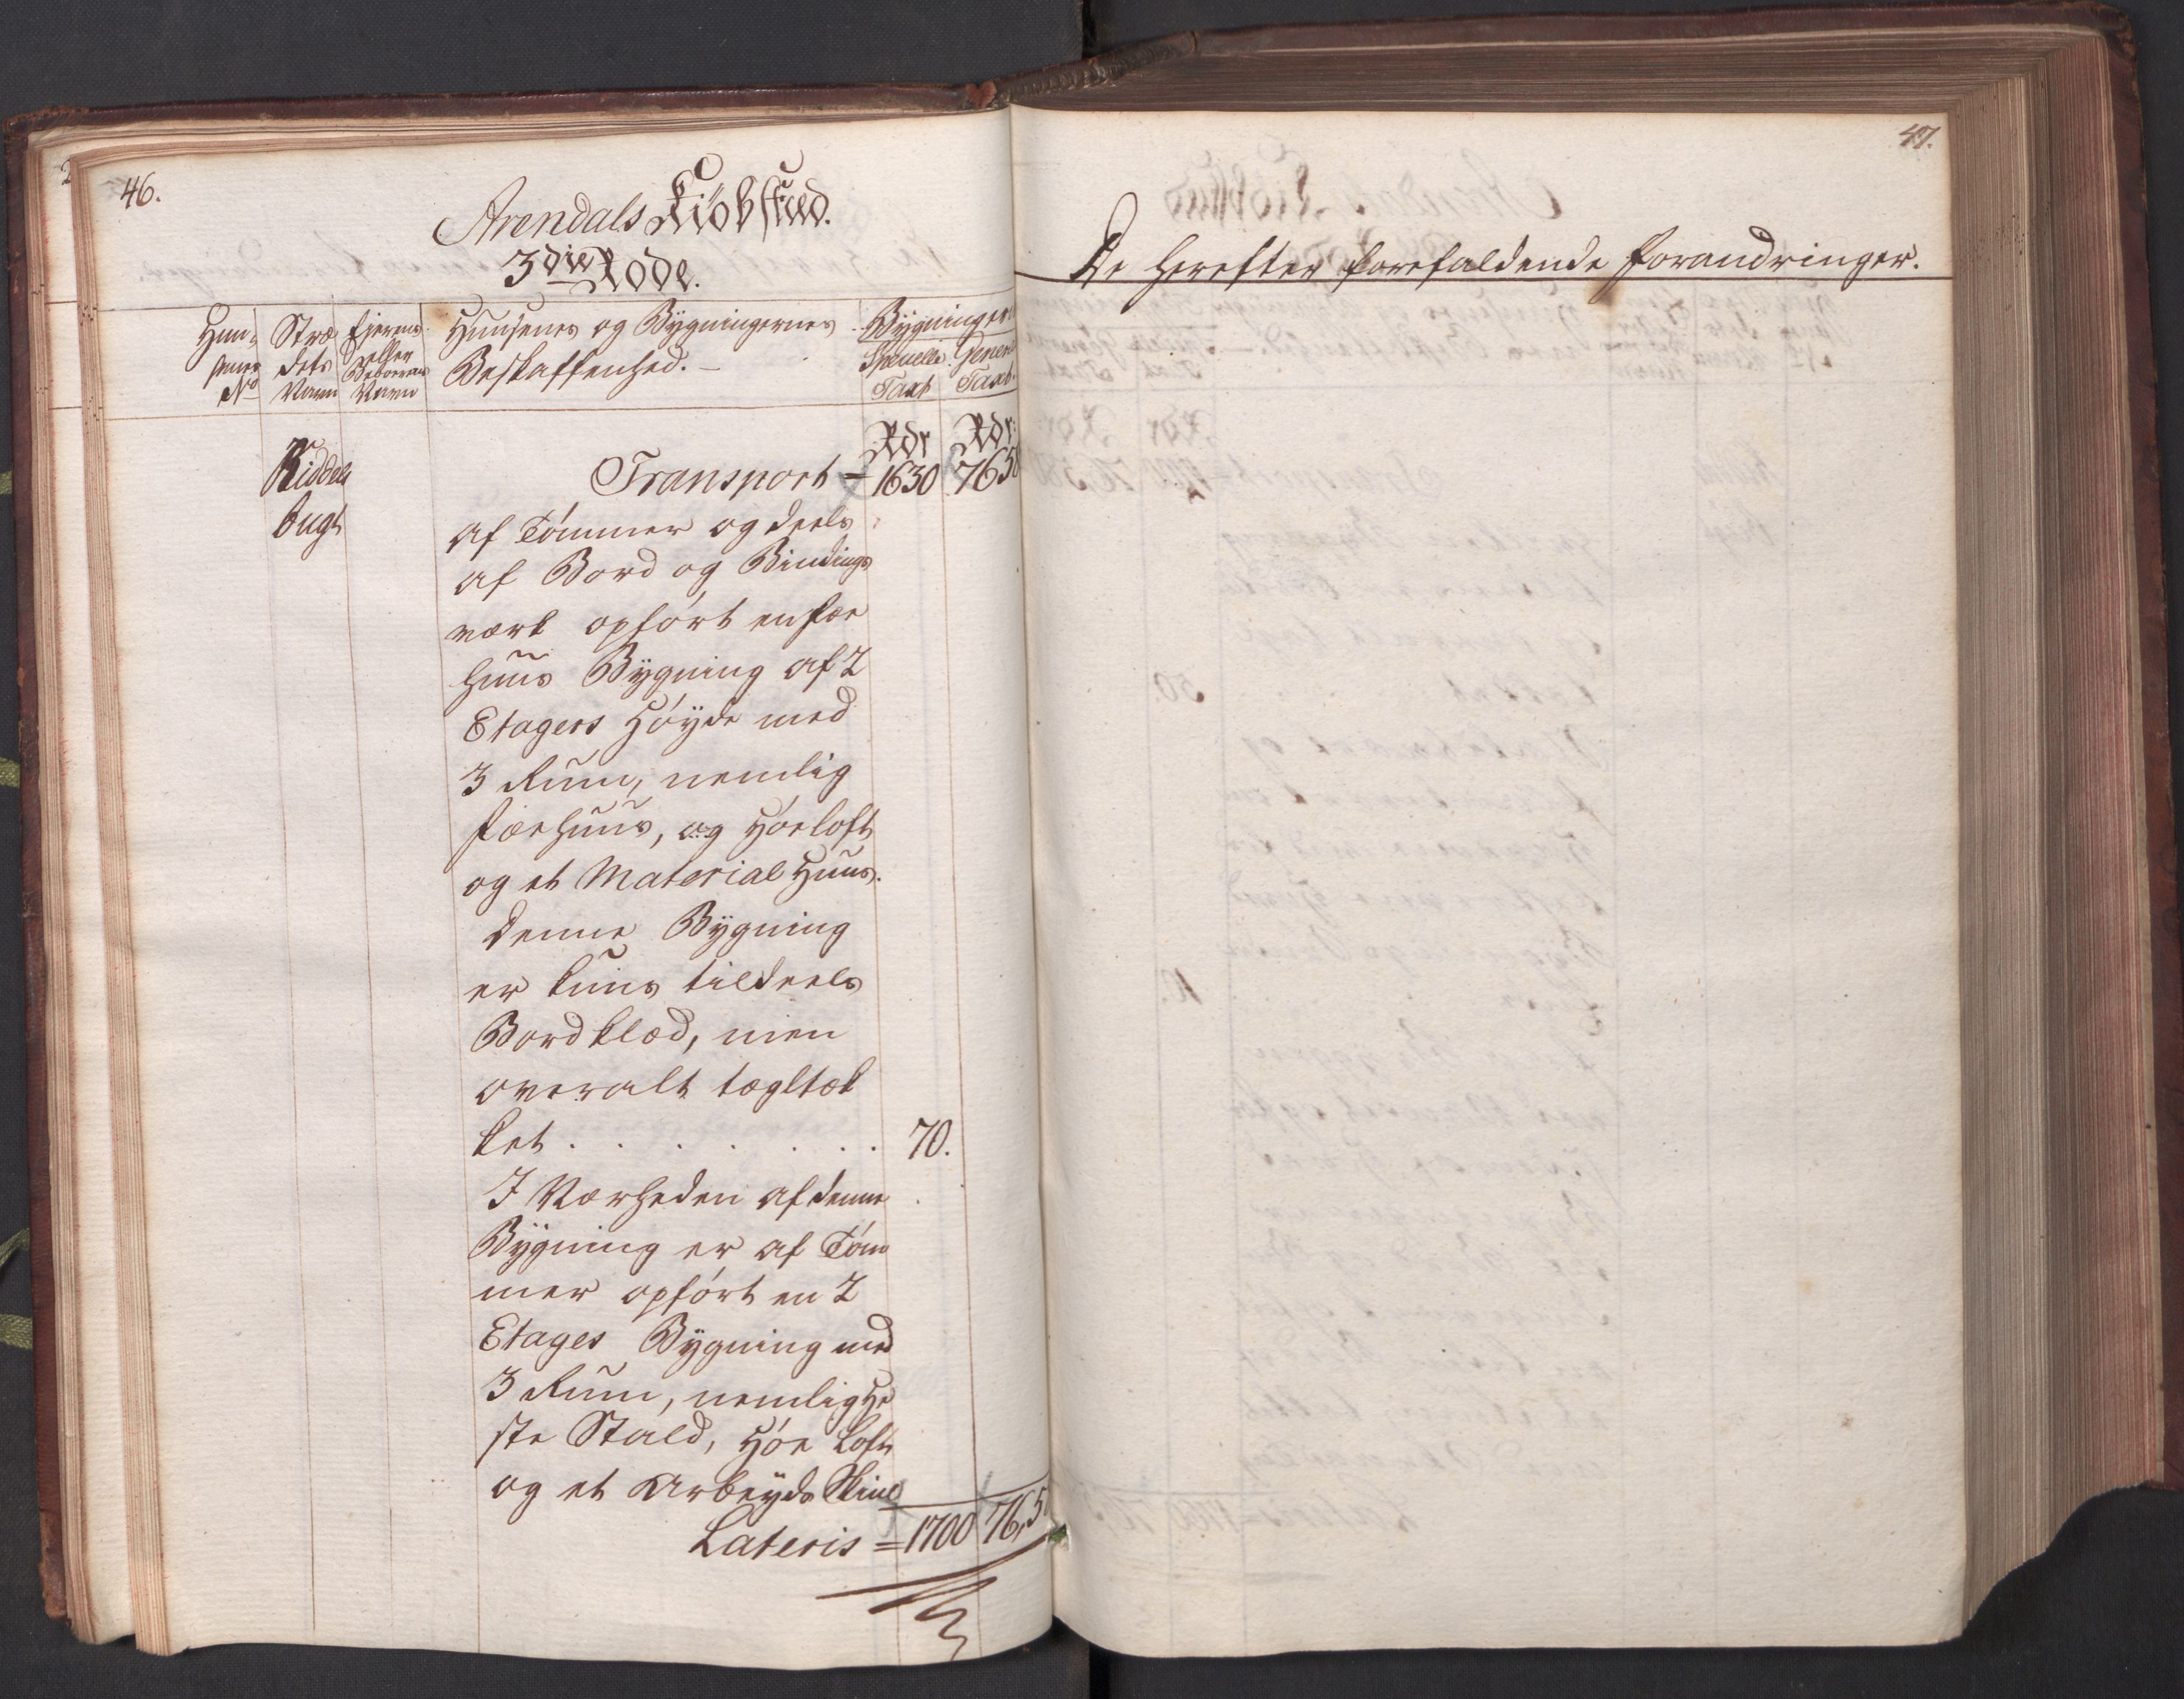 46.
Arendals Kiöbstæd.
3die Rode.
Huu-
senes
No
Stræ
dets
Navn
Ejerens
eller
Beboerens
Navn
Huusenes og Bygningernes
Beskaffenhed. -
Bygninger
Specielle
Taxt
Gener
Taxt.
Rdr
Rdr:
Kiddels
bugt
Transport = 1630 7650
af Tømmer og deels
af Bord og Bindings
værk opført en Fæe
huus Bygning af 2
Etagers Høyde med
3 Rum, nemlig
Fæehuus, og Høeloft
og et Material Huus.
Denne Bygning
er kuns tildeels
Bordklæd, men
overalt tægltæk
ket . . . . . . . 70.
I Nærheden af denne
Bygning er af Tøm
mer opført en 2
Etages Bygning med
3 Rum, nemlig He
ste Stald, Høe Loft
og et Arbeyds Skiul
Lateris = 1700 76,5
47.
De herefter forefaldende Forandringer.